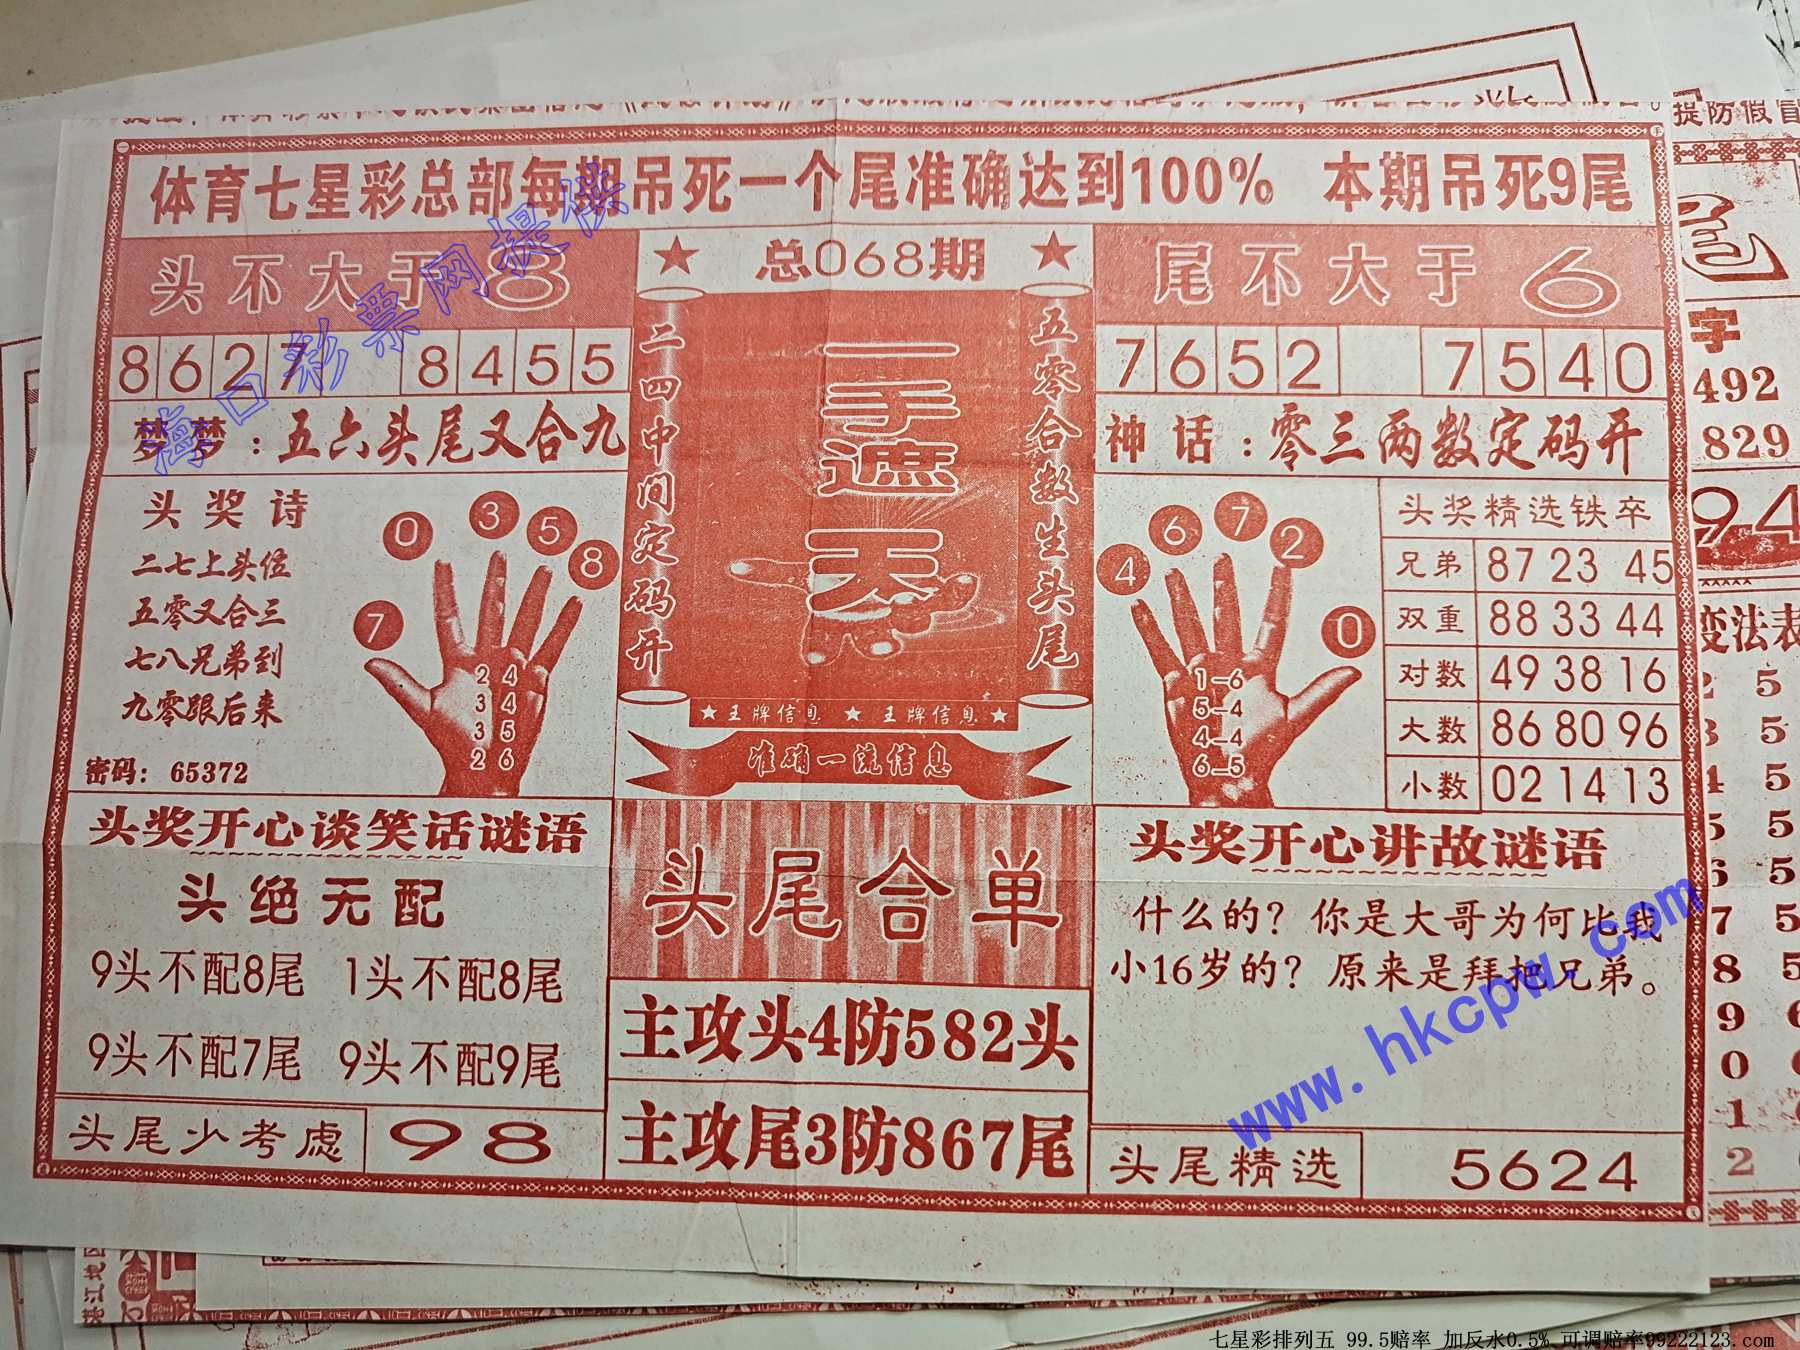 体育七星彩总部每期吊死一个尾准确达到100% 本期吊死9尾
头不大于8
总068期
尾不大于6
8627 8455
7652 7540
梦梦：五六头尾又合九
神话：零三两数定码开
二四中间定码开
一手遮天
五零合数生头尾
★王牌信息 ★ 王牌信息★
准确一流信息
头奖诗
二七上头位
五零又合三
七八兄弟到
九零跟后来
密码：65372
7 0 3 5 8
2 4
3 4
3 5
2 6
4 6 7 2 0
1—6
5—4
4—4
6—5
头奖精选铁卒
兄弟 87 23 45
双重 88 33 44
对数 49 38 16
大数 86 80 96
小数 02 14 13
头奖开心谈笑话谜语
头绝无配
9头不配8尾 1头不配8尾
9头不配7尾 9头不配9尾
头尾少考虑 98
头尾合单
主攻头4防582头
主攻尾3防867尾
头奖开心讲故谜语
什么的？你是大哥为何比我
小16岁的？原来是拜把兄弟。
头尾精选 5624
海口彩票网提供
www.hkcpw.com
提防假冒
尾
字
492
829
94
变法表
2 5
3 5
4 5
5 5
6 5
7 5
8 5
9 6
0 6
1
2
湛江地区
七星彩排列五 99.5赔率 加反水0.5% 可调赔率99222123.com